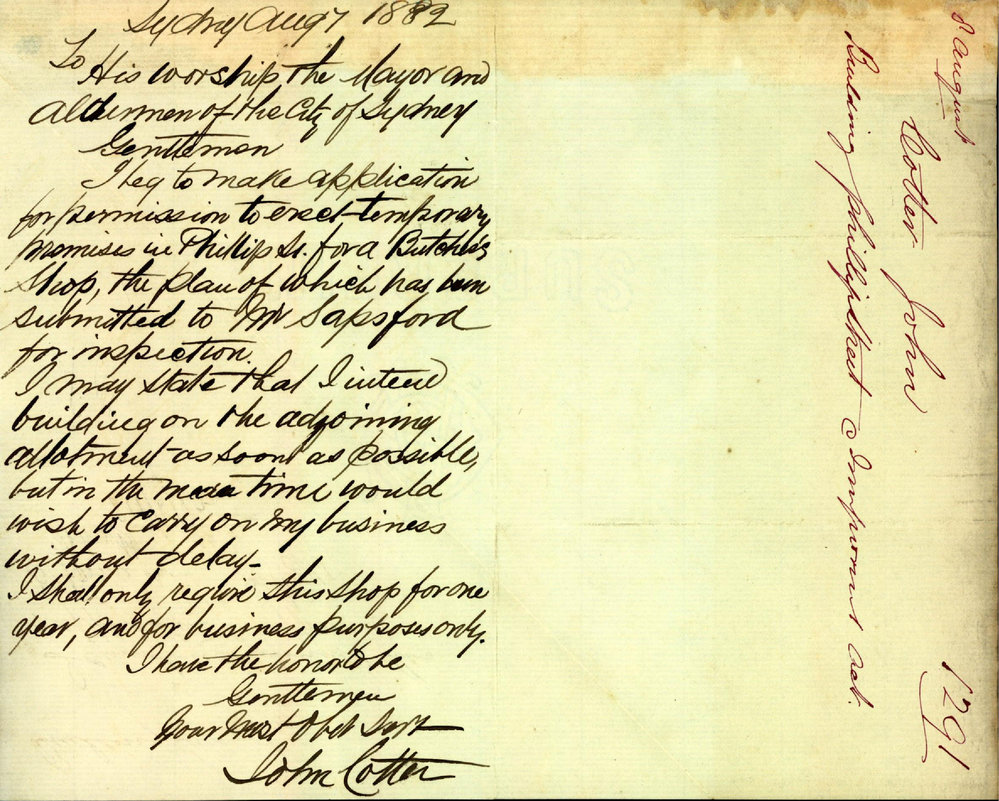 Sydney Aug 7 1882
To His worship the Mayor and
Aldermen of the City of Sydney
Gentlemen
I beg to make application
for permission to erect temporary
premises in Phillip St. for a Butcher's
Shop, the plan of which has been
submitted to Mr Sapsford
for inspection.
I may state that I intend
building on the adjoining
allotment as soon as possible,
but in the mean time would
wish to carry on my business
without delay -
I shall only require this shop for one
year, and for business purposes only.
I have the honor to be
Gentlemen
Your Most Obdt Servt
John Cotter
8 august
Cotter John
1291
Building phillip street & Improvmt act.